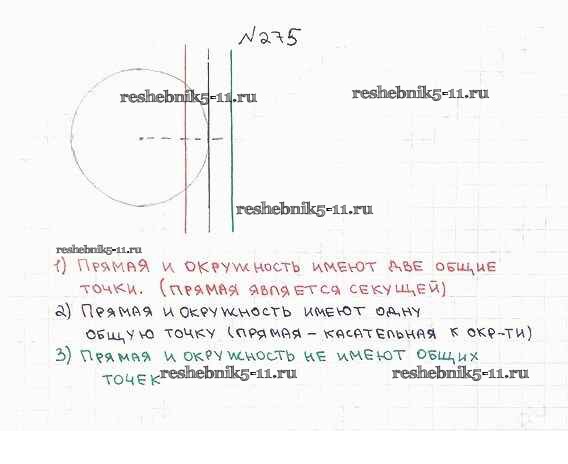 №275
reshebnik5-11.ru
reshebnik5-11.ru
reshebnik5-11.ru
reshebnik5-11.ru
1) ПРЯМАЯ И ОКРУЖНОСТЬ ИМЕЮТ ДВЕ ОБЩИЕ
ТОЧКИ. (ПРЯМАЯ ЯВЛЯЕТСЯ СЕКУЩЕЙ)
2) ПРЯМАЯ И ОКРУЖНОСТЬ ИМЕЮТ ОДНУ
ОБЩУЮ ТОЧКУ (ПРЯМАЯ – КАСАТЕЛЬНАЯ К ОКР-ТИ)
3) ПРЯМАЯ И ОКРУЖНОСТЬ НЕ ИМЕЮТ ОБЩИХ
ТОЧЕК
reshebnik5-11.ru
reshebnik5-11.ru